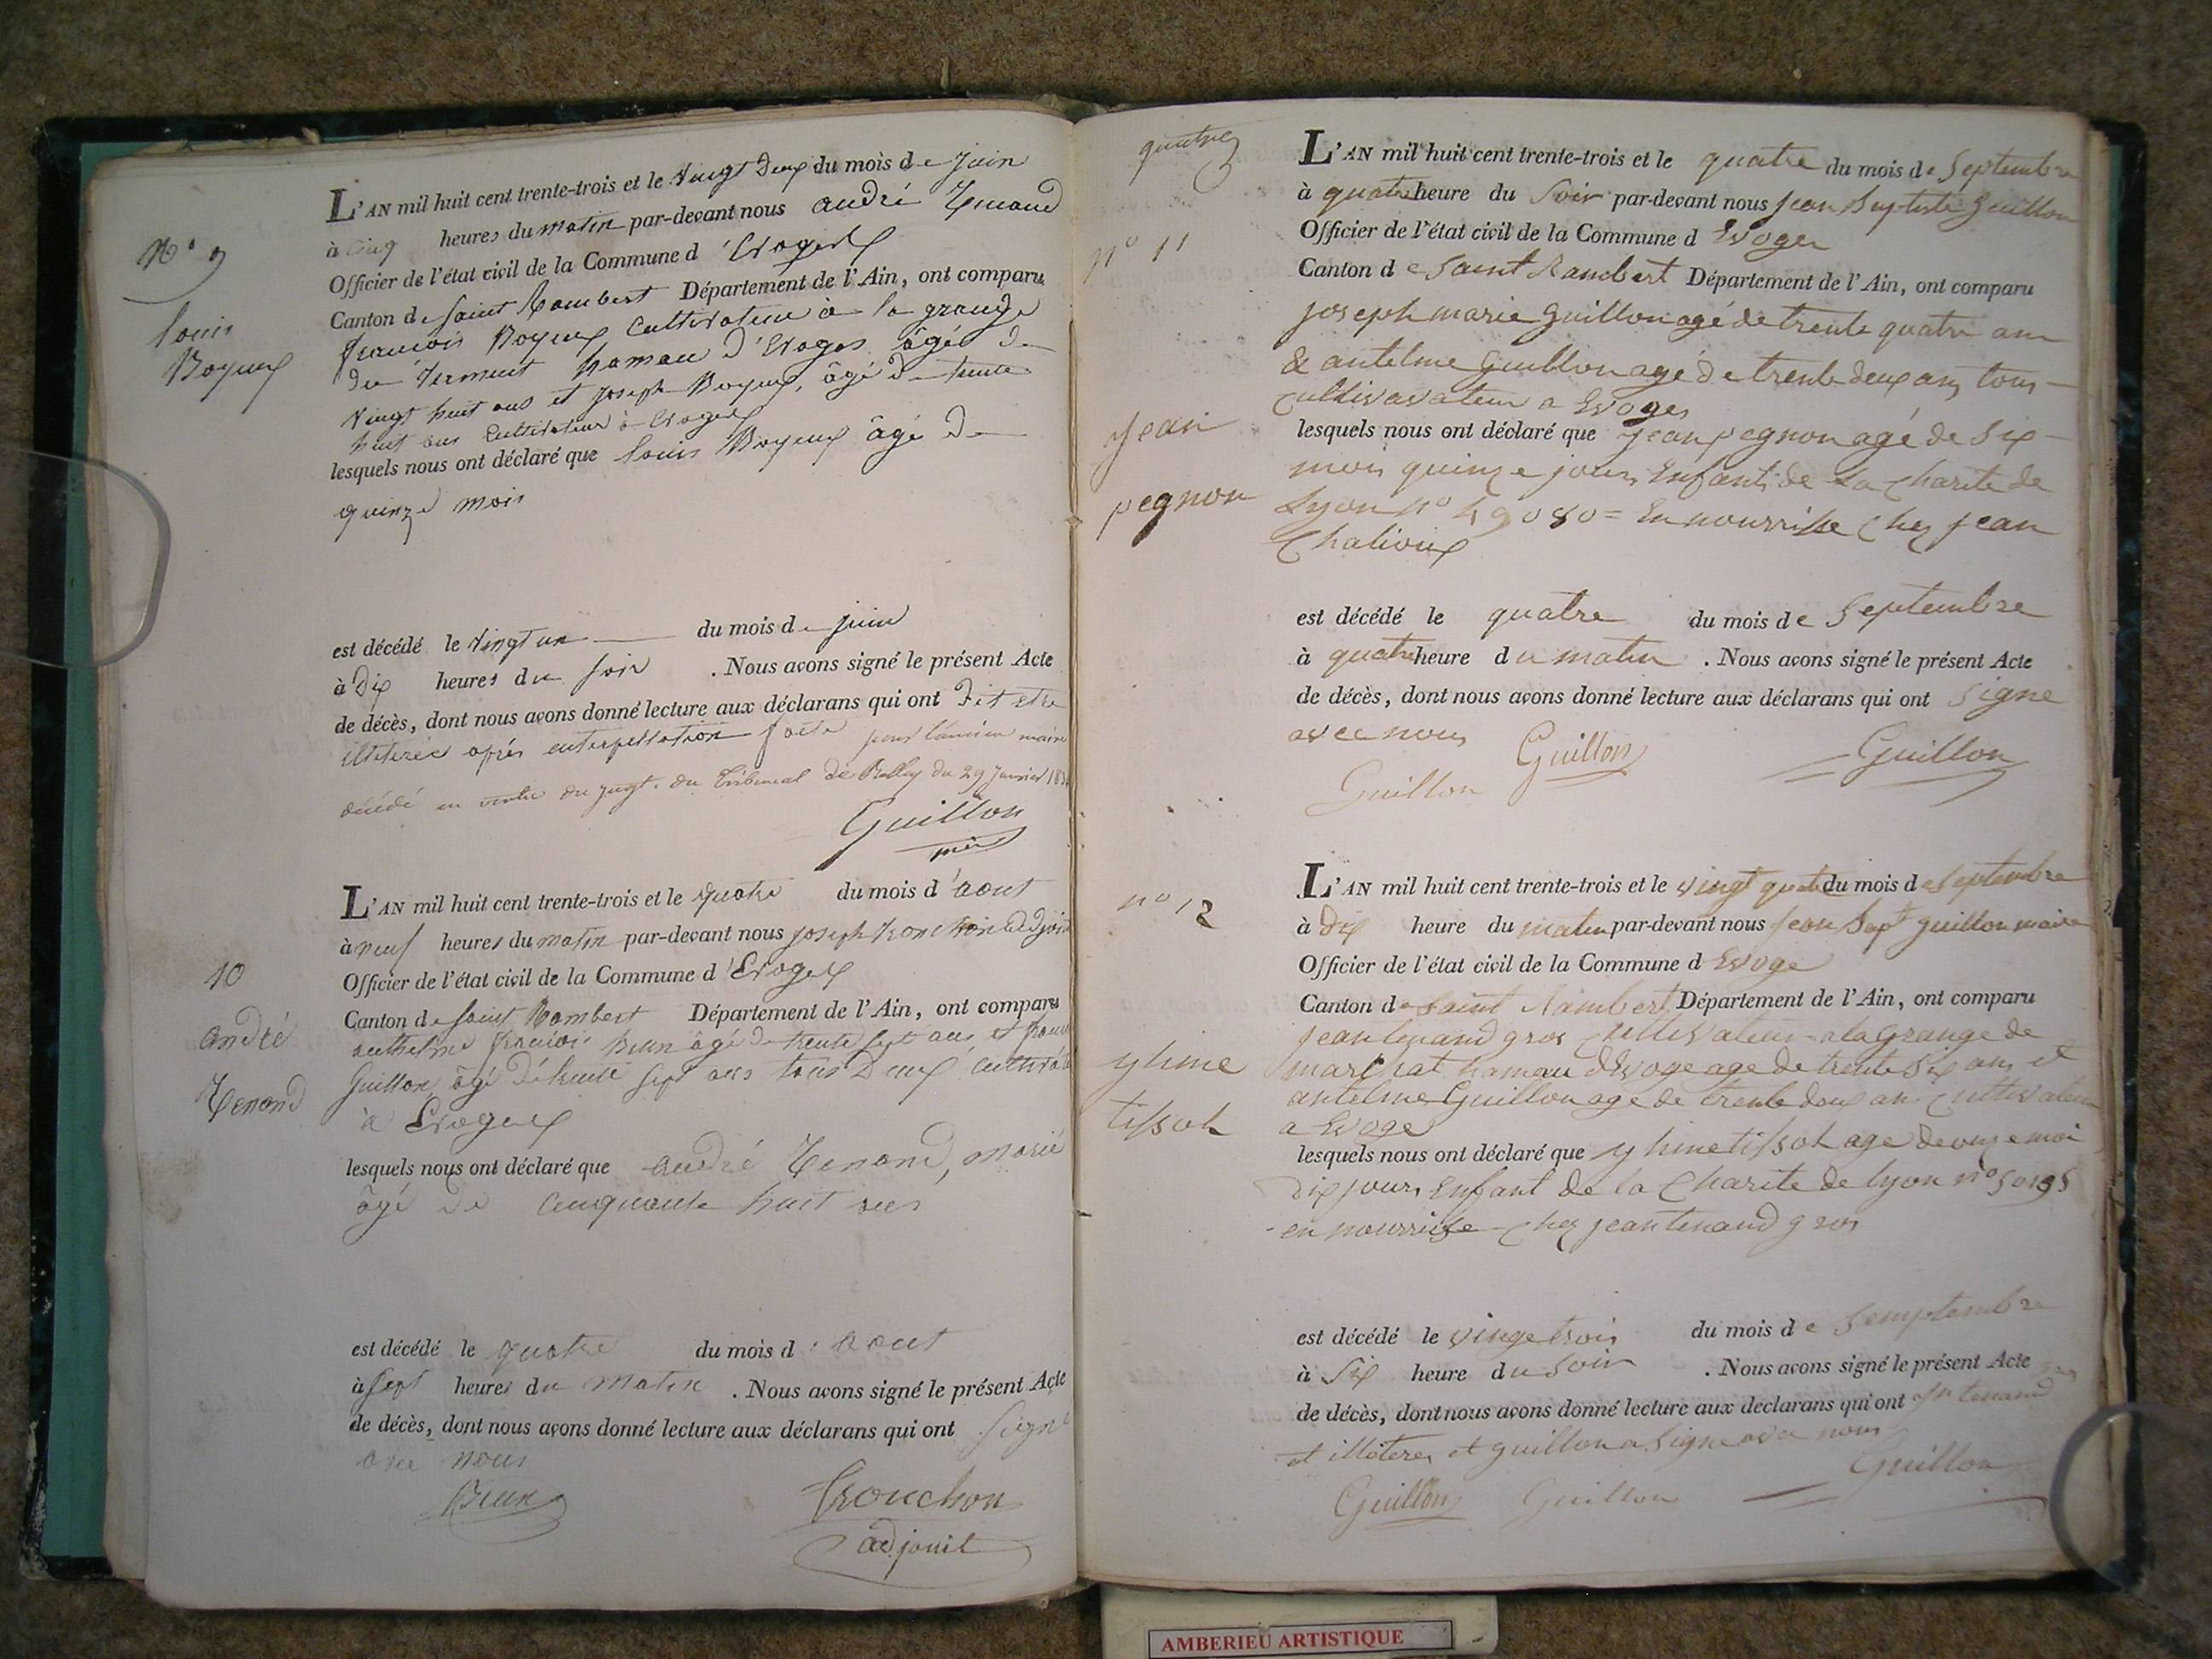 N° 9
Louis
Boyeux
L'AN mil huit cent trente-trois et le vingt deux du mois de Juin
à cinq heures du matin par-devant nous andré Tenand
Officier de l'état civil de la Commune d'Evoges
Canton de saint Rambert Département de l'Ain, ont comparu
françois Boyeux Cultivateur à la grange
du hamau d'Evoges âgé de
vingt huit ans et joseph Boyeux, âgé de trente
huit ans Cultivateur à Evoges
lesquels nous ont déclaré que louis Boyeux âgé de
quinze mois
est décédé le vingt un du mois de juin
à Dix heures du soir . Nous avons signé le présent Acte
de décès, dont nous avons donné lecture aux déclarans qui ont Dit etre
après enterpellation faite pour l'ancien maire
décédé en vertu du jugt. du Tribunal de Belley du 29 Janvier
Guillon
10
andré
Tenand
L'AN mil huit cent trente-trois et le quatre du mois d'aout
à neuf heures du matin par-devant nous joseph adjoint
Officier de l'état civil de la Commune d'Evoges
Canton de saint Rambert Département de l'Ain, ont comparu
anthelme françois Brun âgé de trente sept ans et
Guillon âgé de trente sept ans tous Deux
à Evoges
lesquels nous ont déclaré que andré Tenand, marié
âgé de cinquante huit ans
est décédé le quatre du mois d'aout
à sept heures du matin . Nous avons signé le présent Acte
de décès, dont nous avons donné lecture aux déclarans qui ont signé
avec nous
Brun Tronchon
adjoint
quatre
n° 11
jean
pegnon
L'AN mil huit cent trente-trois et le quatre du mois de Septembre
à quatre heure du soir par-devant nous jean Baptiste guillon
Officier de l'état civil de la Commune d Evoges
Canton de saint Rambert Département de l'Ain, ont comparu
joseph marie guillon agé de trente quatre ans
& antelme Guillon agé de trente deux ans tous
cultivavateur a Evoges
lesquels nous ont déclaré que jean pegnon agé de six
mois quinze jours Enfant de La Charite de
Lyon n° 49080 = En nourrisse chez jean
Chalioux
est décédé le quatre du mois de Septembre
à quatre heure du matin . Nous avons signé le présent Acte
de décès, dont nous avons donné lecture aux déclarans qui ont signe
avec nous Guillon Guillon
Guillon
n° 12
yhme
tissot
L'AN mil huit cent trente-trois et le vingt quatre du mois de septembre
à dix heure du matin par-devant nous jean Bapt guillon maire
Officier de l'état civil de la Commune d Evoge
Canton de Saint Rambert Département de l'Ain, ont comparu
jean tenand gros Cultivateur a la Grange de
marchat hamau d'Evoge age de trente six ans et
antelme Guillon age de trente deux an Cultivateur
a Evoge
lesquels nous ont déclaré que yhme tissot age de onze moi
dix jours Enfant de la Charite de lyon n°
en nourrisse chez jean tenand gros
est décédé le vinge trois du mois de Semptembre
à six heure du soir . Nous avons signé le présent Acte
de décès, dont nous avons donné lecture aux déclarans qui ont jn tenand
et illiteres et guillon a signe avec nous
Guillon Guillon Guillon
AMBERIEU ARTISTIQUE